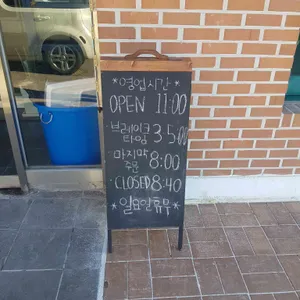 *영업시간*
OPEN 11:00
브레이크
타임 3 5:00
마지막
주문 8:00
CLOSED 8:40
*일요일휴무*